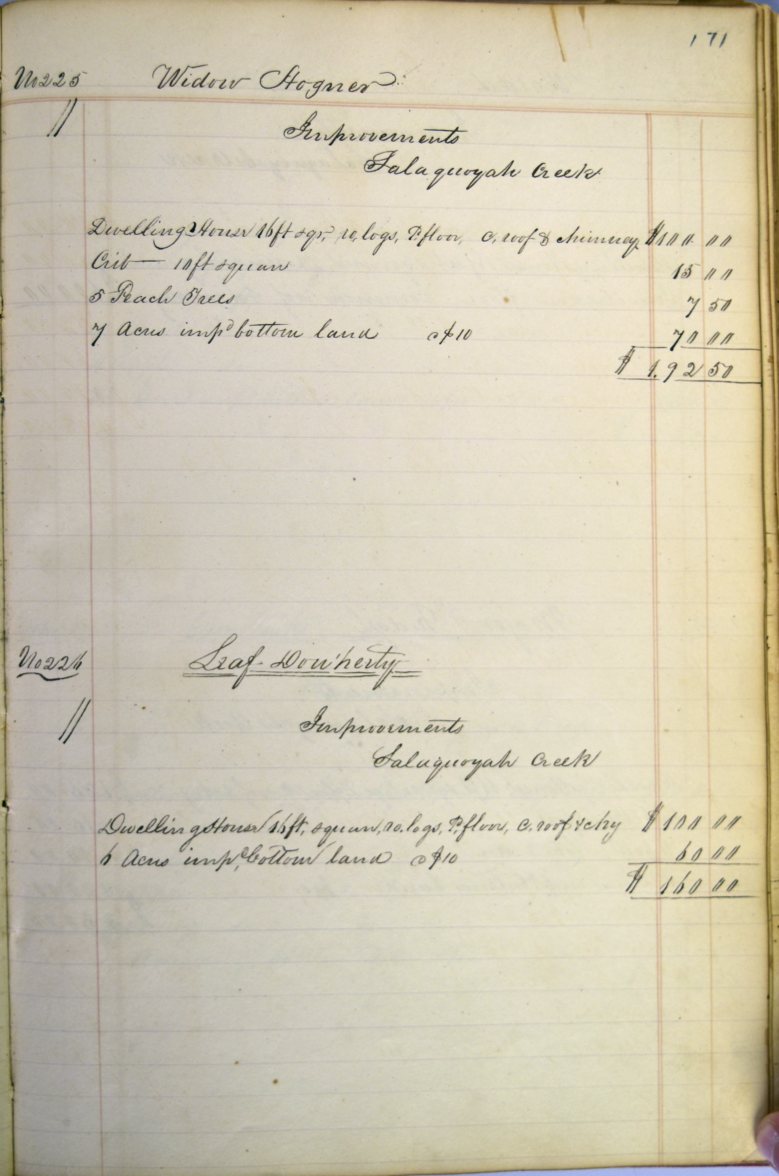 171
No 225 Widow Hogner
//
Improvements
Salaquoyah Creek
Dwelling House 16ft sqr, ro, logs, P. floor, c. roof & chimney $100 00
Crib — 10ft square 15 00
5 Peach Trees 7 50
7 Acres impd bottom land @ $10 70 00
$ 1.92 50
No 226 Leaf Dow'herty
//
Improvements
Salaquoyah Creek
Dwelling House 16ft, square, ro. logs, P. floor, c. roof & chy $100 00
6 Acres impd, bottom land @ $10 60 00
$ 160 00